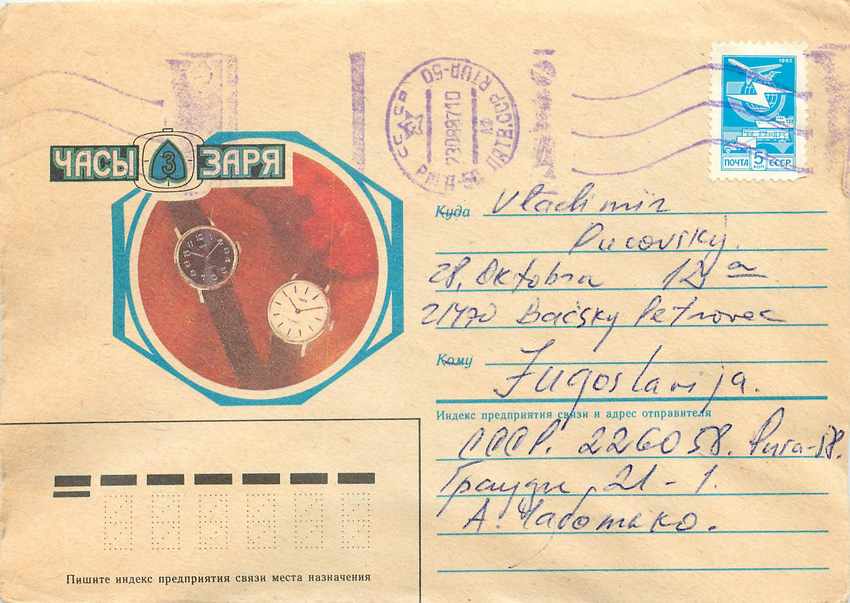 ЧАСЫ З ЗАРЯ
СССР
РИГА-50
23088710
ЛАТВ.ССР RĪGA-50
1982
ПОЧТА 5 КОП СССР
Куда Vladimir
Pucovsky.
28. Oktobra 12a
21470 Bačsky Petrovec
Кому Jugoslavija.
Индекс предприятия связи и адрес отправителя
СССР. 226058. Рига-58.
Грауду, 21-1.
А. Чаботько.
Пишите индекс предприятия связи места назначения